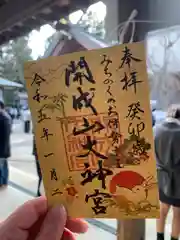 奉拝
癸卯歳
みちのくの大神
開成山大神宮
令和五年一月二